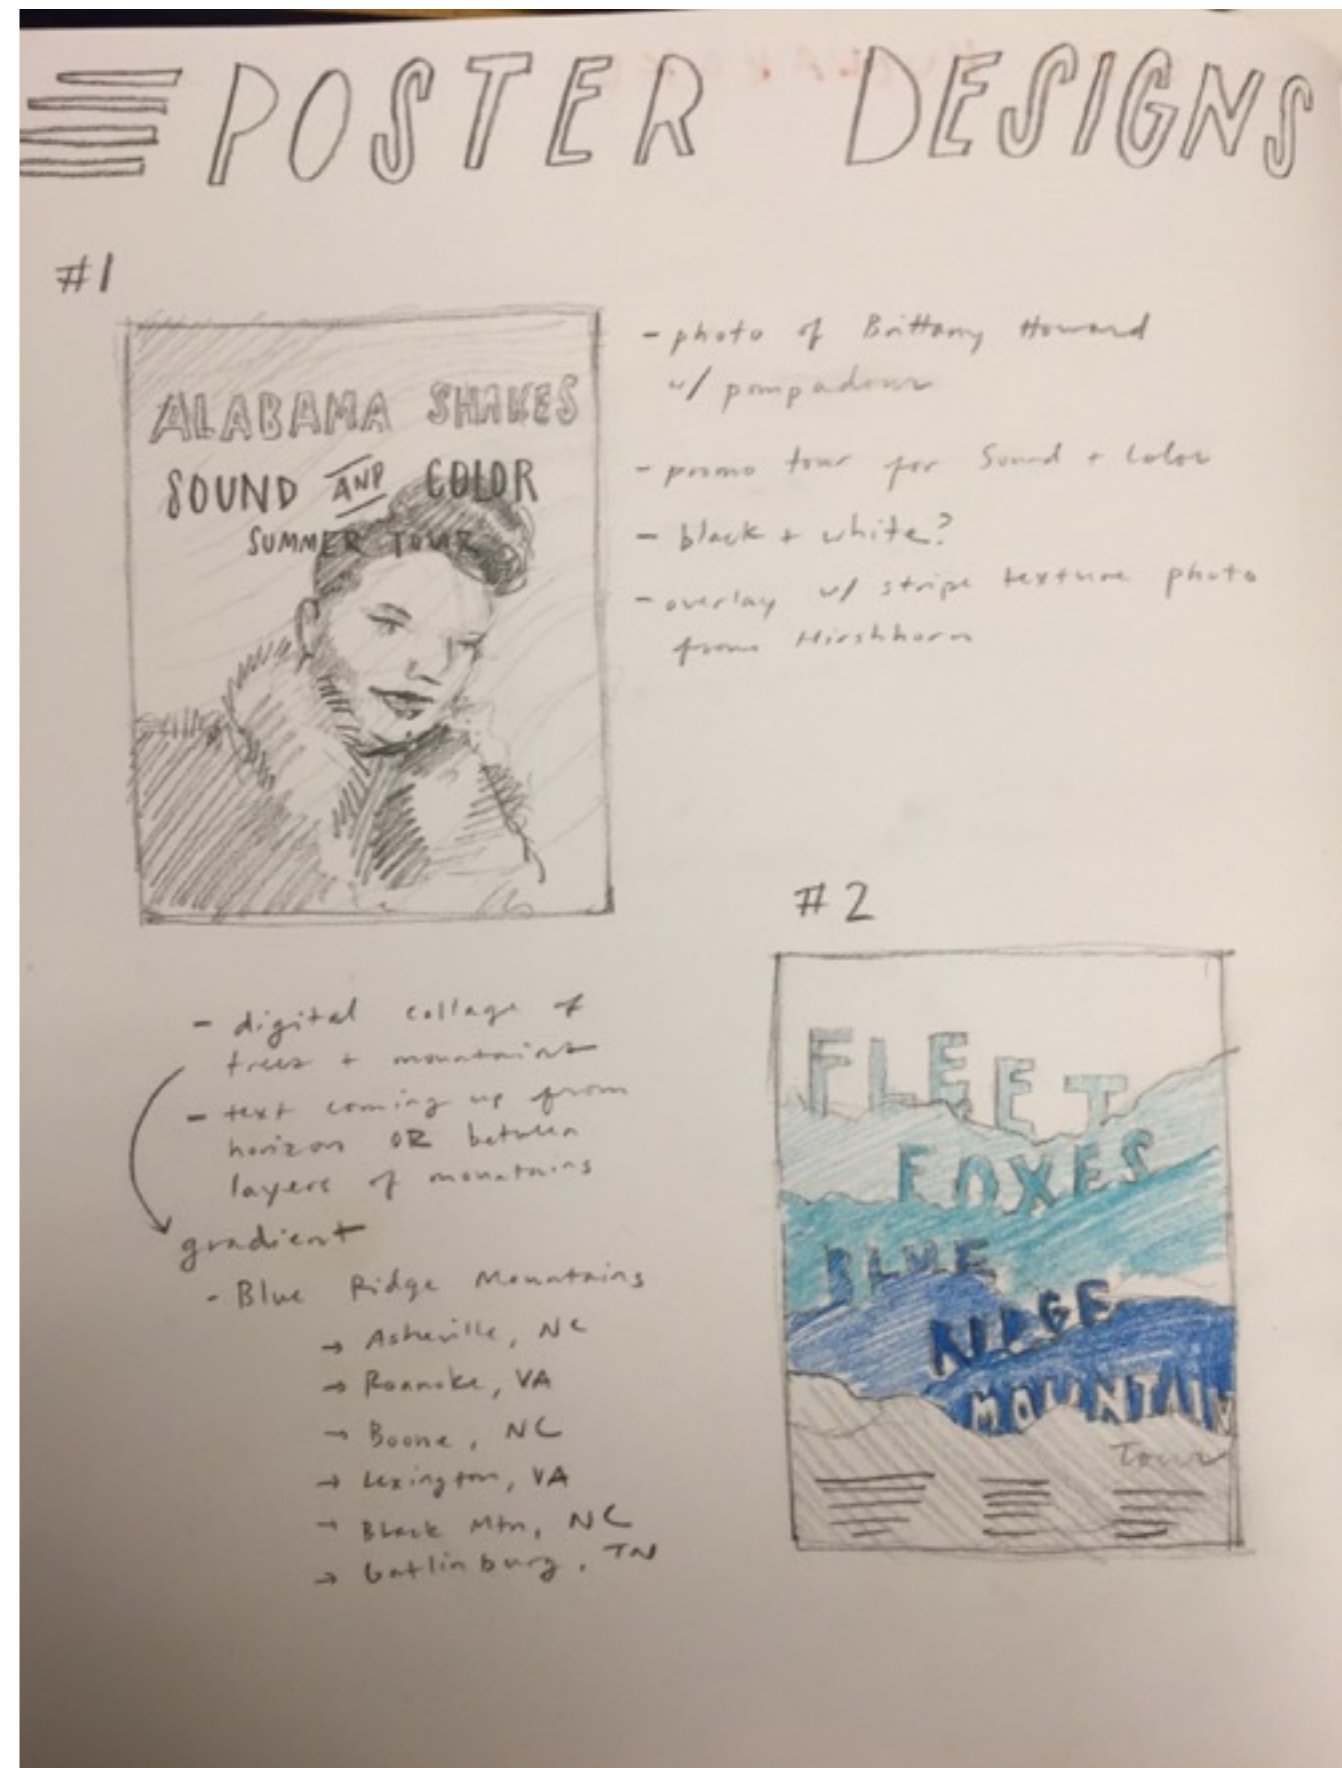 POSTER DESIGNS
#1
ALABAMA SHAKES
SOUND AND COLOR
SUMMER TOUR
- photo of Brittany Howard
w/ pompadour
- promo tour for Sound + Color
- black + white?
- overlay w/ stripe texture photo
from Hirshhorn
#2
- digital collage of
trees + mountains
- text coming up from
horizon OR between
layers of mountains
gradient
- Blue Ridge Mountains
→ Asheville, NC
→ Roanoke, VA
→ Boone, NC
→ Lexington, VA
→ Black Mtn, NC
→ Gatlinburg, TN
FLEET
FOXES
BLUE
RIDGE
MOUNTAIN
Tour